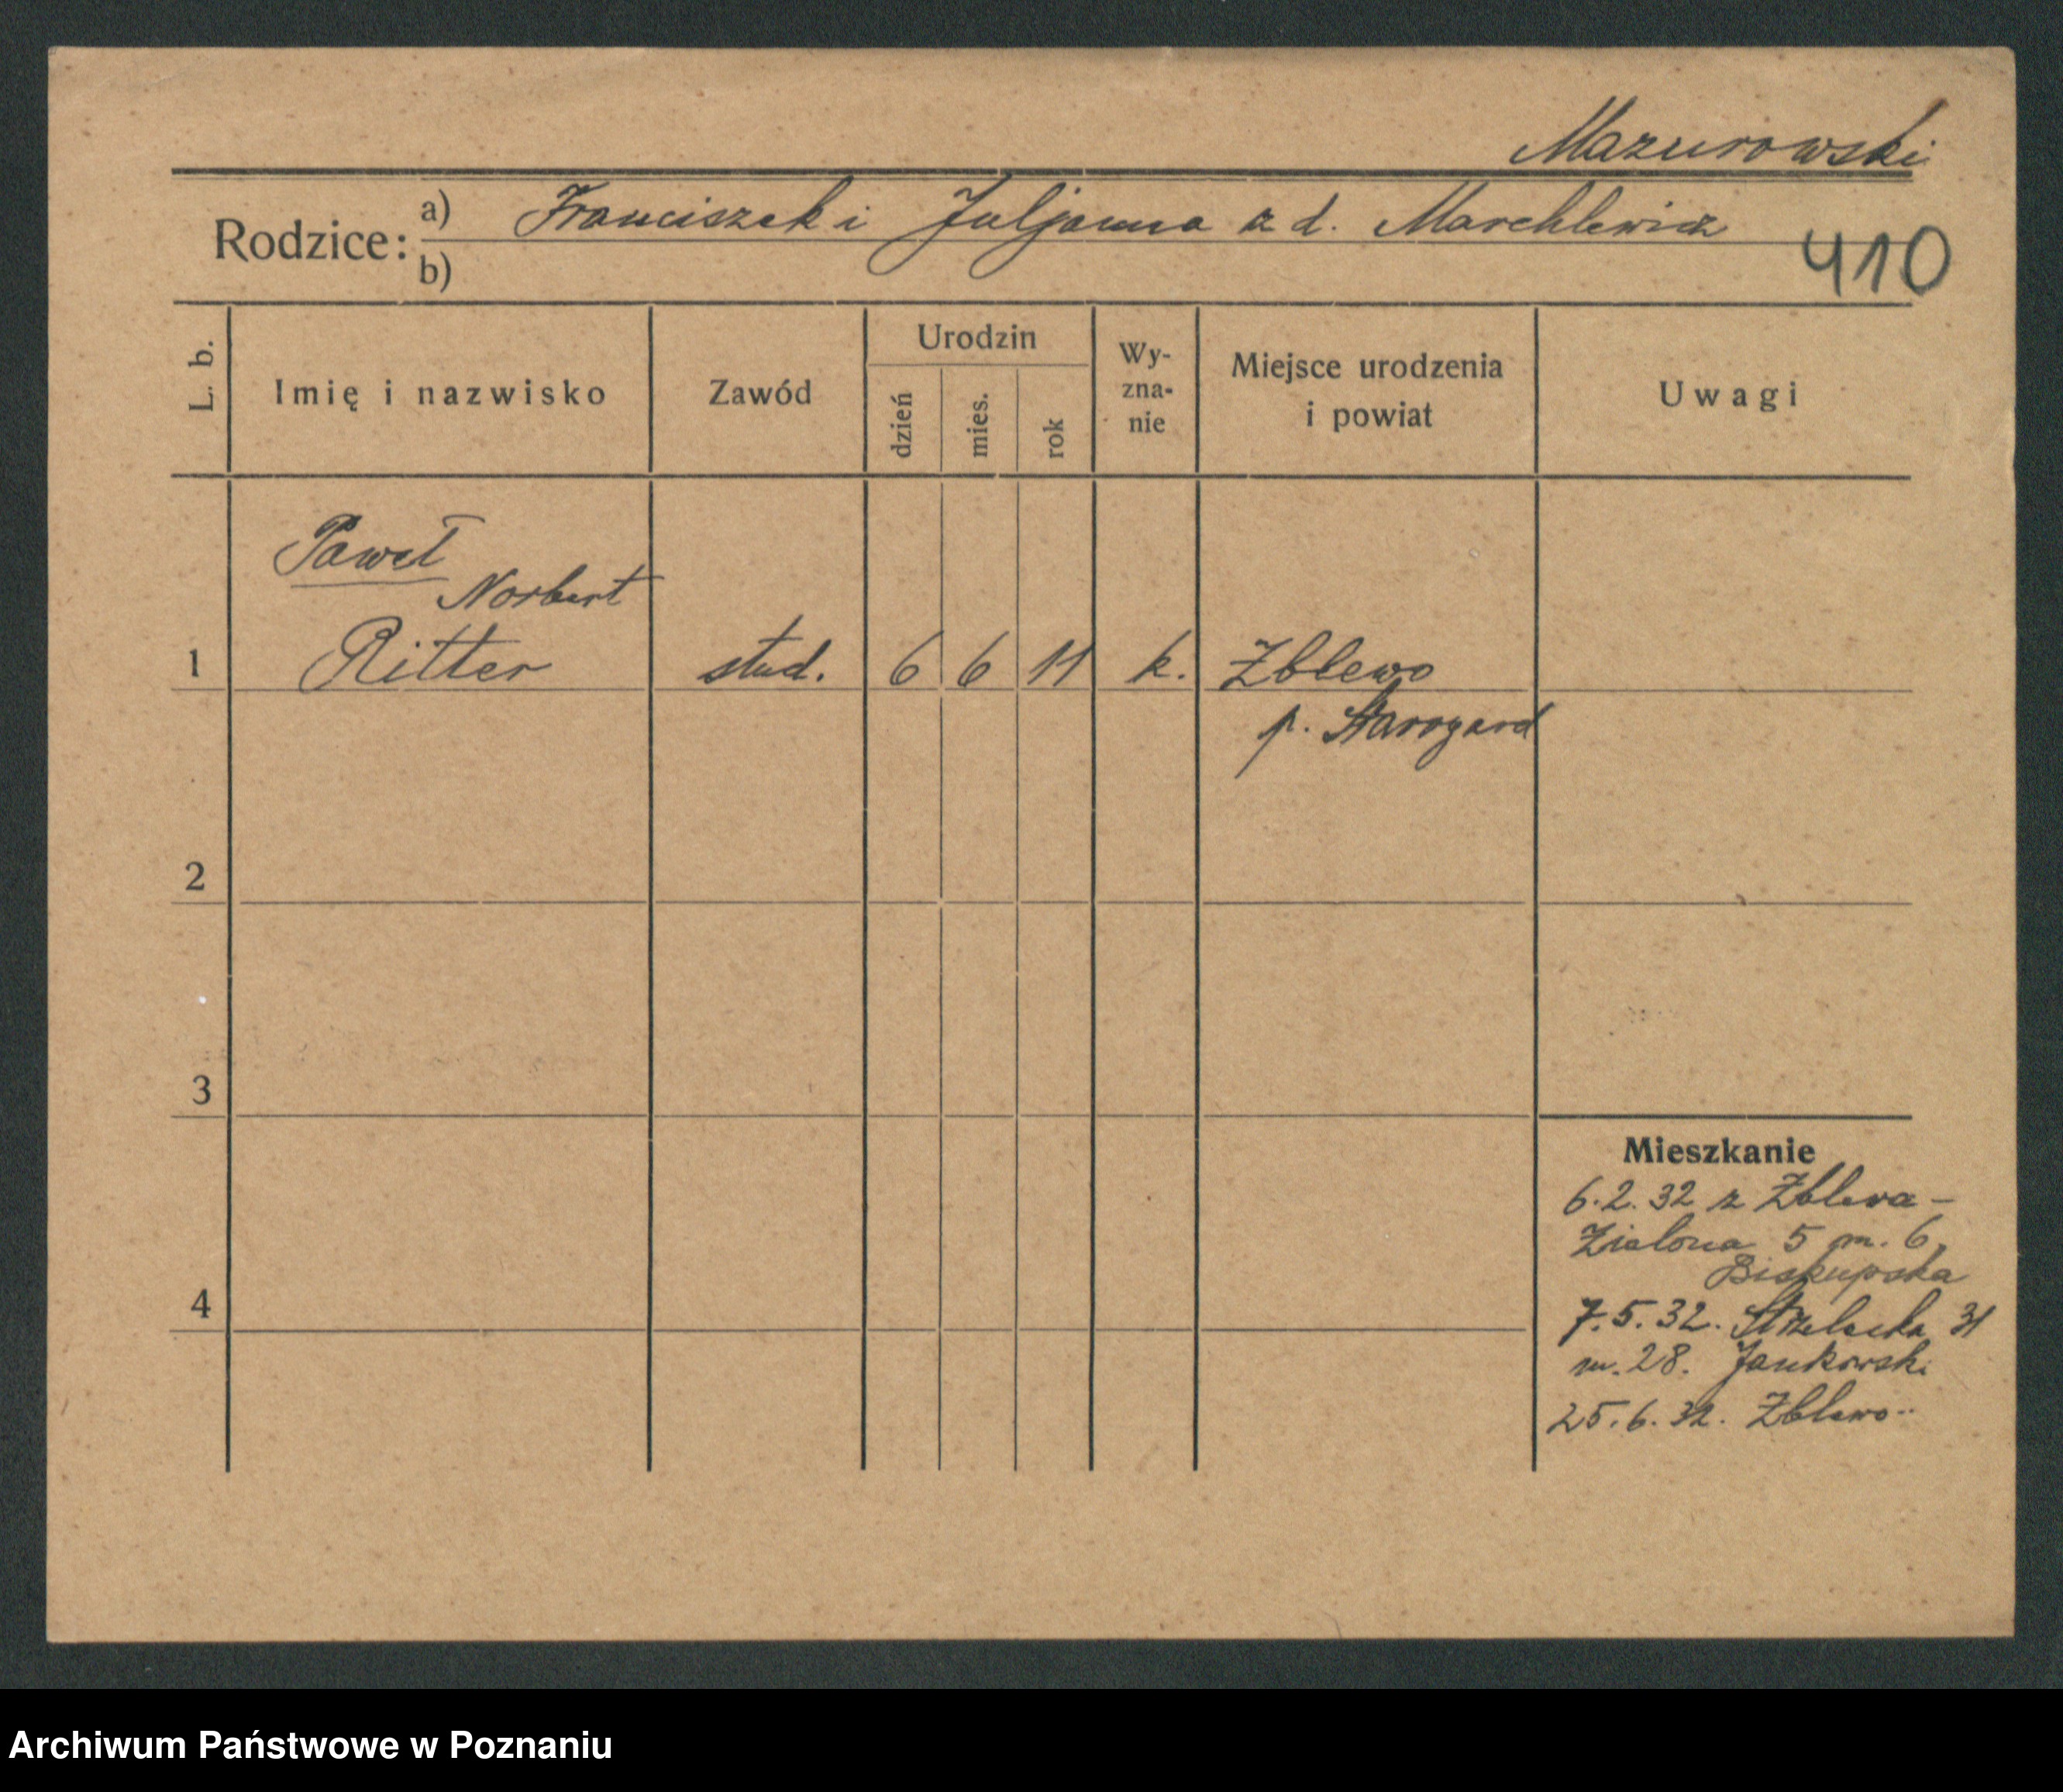 Mazurowski
Rodzice: a) Franciszek i Juljanna z d. Marchlewicz
b)
410
L. b. Imię i nazwisko Zawód Urodzin dzień mies. rok Wy-zna-nie Miejsce urodzenia i powiat Uwagi
Paweł
Norbert
1 Ritter stud. 6 6 11 k. Zblewo
p. Starogard
2
3
Mieszkanie
6.2.32 z Zblewa –
Zielona 5 m. 6,
Biskupska
4
7.5.32. Strzelecka 31
m. 28. Jankowski
25.6.32. Zblewo
Archiwum Państwowe w Poznaniu